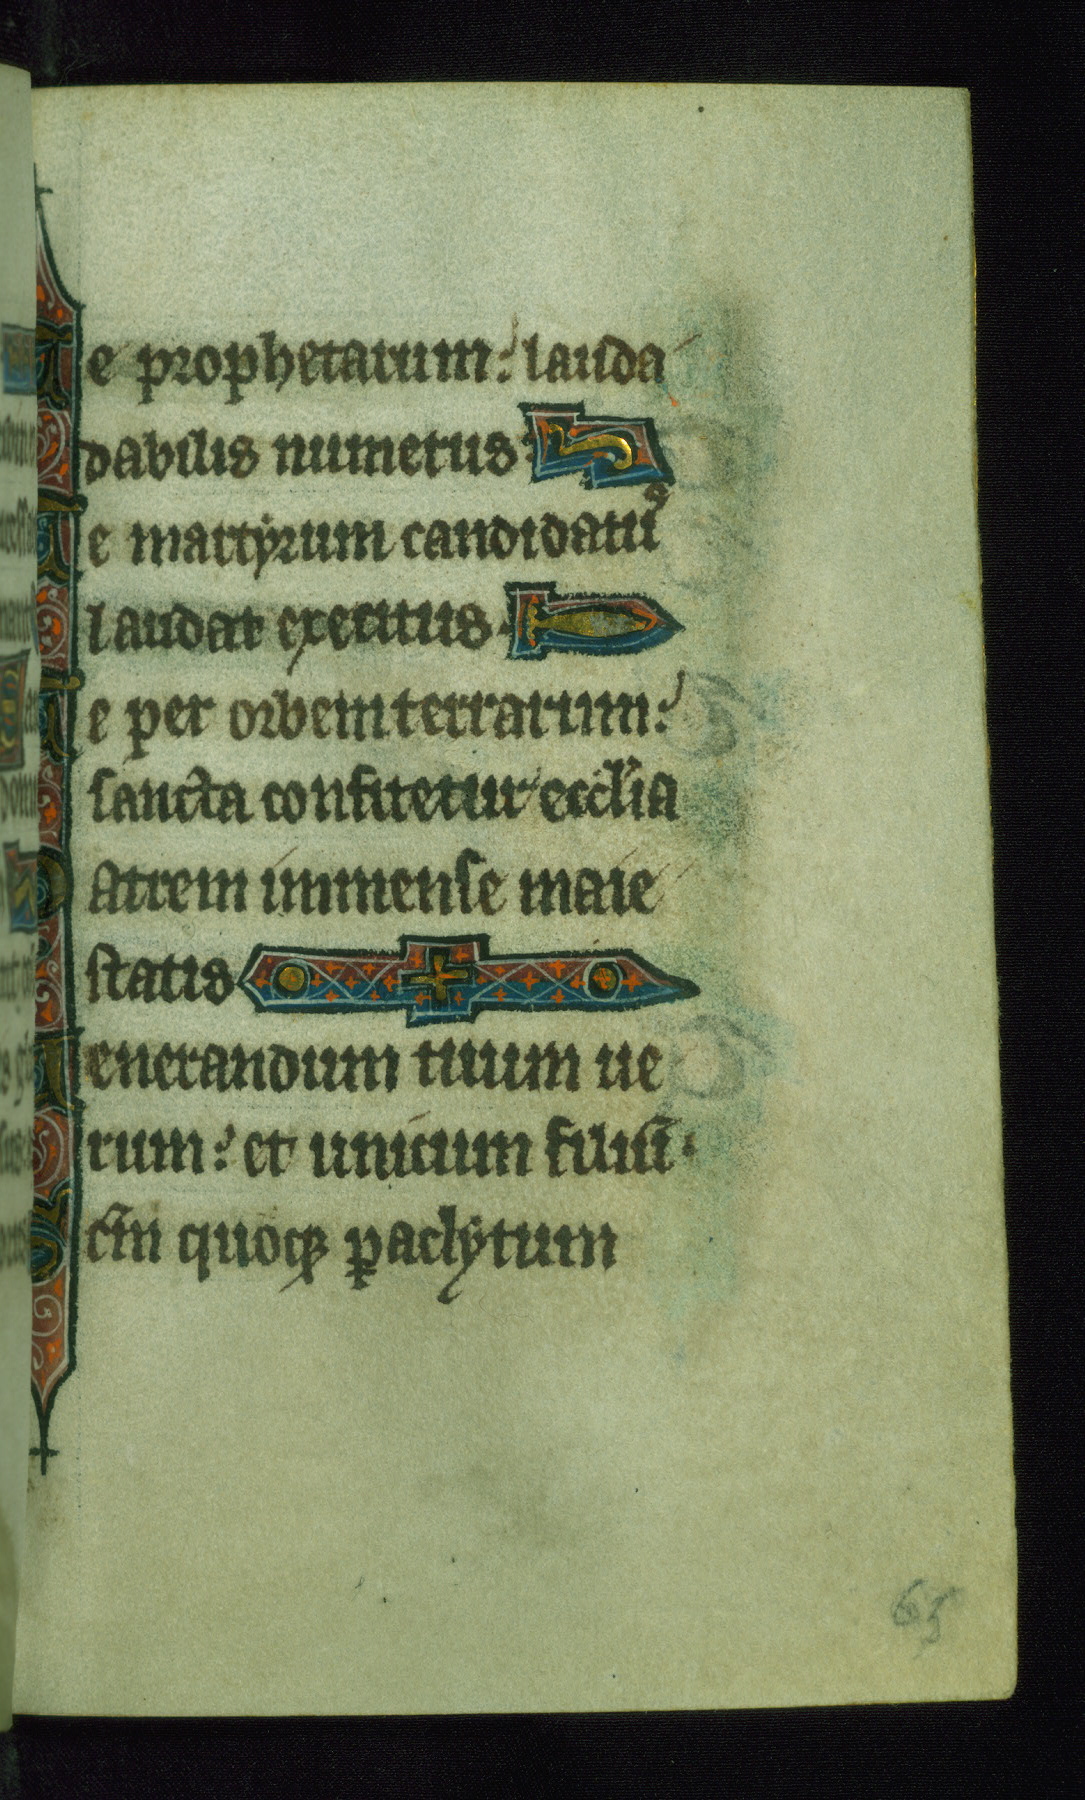 Te prophetarum: lauda
dabilis numerus:
Te martyrum candidatuꝰ
laudat exercitus.
Te per orbem terrarum:
sancta confitetur eccl'ia
Patrem immense maie
statis
Venerandum tuum ue
rum: et unicum filiū.
Scm̄ quoqꝫ ꝑaclytum
65